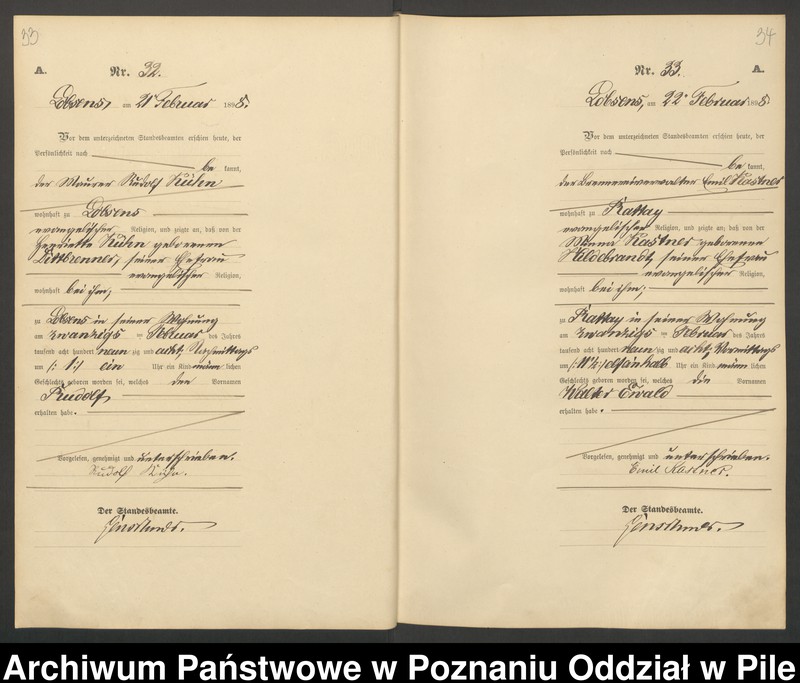 33
A.
Nr. 32.
Lobsens, am 21 Februar 1898.
Vor dem unterzeichneten Standesbeamten erschien heute, der
Persönlichkeit nach
be kannt,
der Maurer Rudolf Kühn
wohnhaft zu Lobsens
evangelischer Religion, und zeigte an, daß von der
Henriette Kühn geborenen
Dittbrenner, seiner Ehefrau
evangelischer Religion,
wohnhaft bei ihm;
zu Lobsens in seiner Wohnung
am zwanzigs ten Februar des Jahres
tausend acht hundert neun zig und acht, Nachmittags
um /: 1 :/ ein Uhr ein Kind männ lichen
Geschlechts geboren worden sei, welches den Vornamen
Rudolf
erhalten habe.
Vorgelesen, genehmigt und unterschrieben.
Rudolf Kühn.
Der Standesbeamte.
34
Nr. 33.
A.
Lobsens, am 22 Februar 1898
Vor dem unterzeichneten Standesbeamten erschien heute, der
Persönlichkeit nach
be kannt,
der Brennereiverwalter Emil Kastner
wohnhaft zu Rattay
evangelischer Religion, und zeigte an, daß von der
Kastner geborenen
Hildebrandt, seiner Ehefrau
evangelischer Religion,
wohnhaft bei ihm;
zu Rattay in seiner Wohnung
am zwanzigs ten Februar des Jahres
tausend acht hundert neun zig und acht, Vormittags
um /: 11½ :/ elfeinhalb Uhr ein Kind männ lichen
Geschlechts geboren worden sei, welches die Vornamen
Walter Ewald
erhalten habe.
Vorgelesen, genehmigt und unterschrieben.
Emil Kastner.
Der Standesbeamte.
Archiwum Państwowe w Poznaniu Oddział w Pile